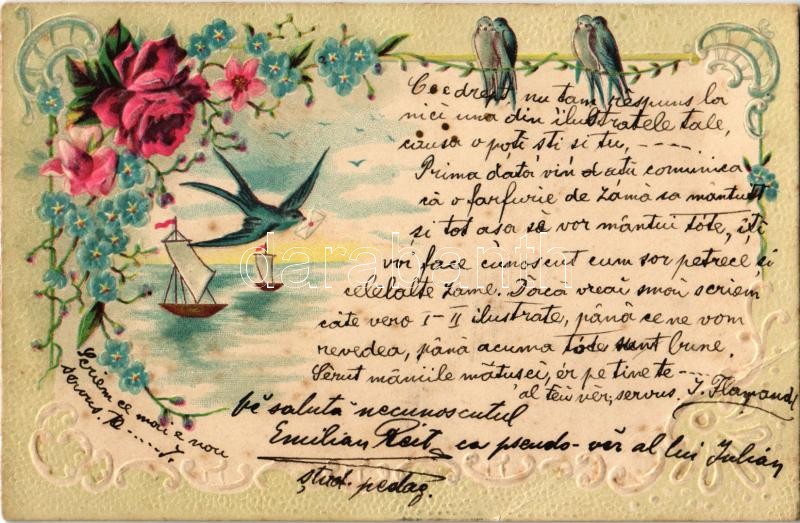 Ce e drept nu tam rèspuns la
nici una din ilustratele tale,
causa o poti sti si tu, -----
Prima dată vin a-ți comunica
că o farfurie de zámà sa mântuit
si tot asa sè vor mântui tóte, iți
voi face cunoscut cum sor petrece si
celelalte zame. Daca vreai smai scriem
câte vero I-II ilustrate, până ce ne vom
revedea, până acuma tóte sunt bune.
Sèrut mâniile mătusei, ér pe tine te ----
al tèu vèr, servus. I. Flamand
Scriem ce mai e nou
servus. Te ---- I.
vè salută necunoscutul
Emilian Reit, ca pseudo-vèr al lui Iulián
stud. pedag.
darabanth